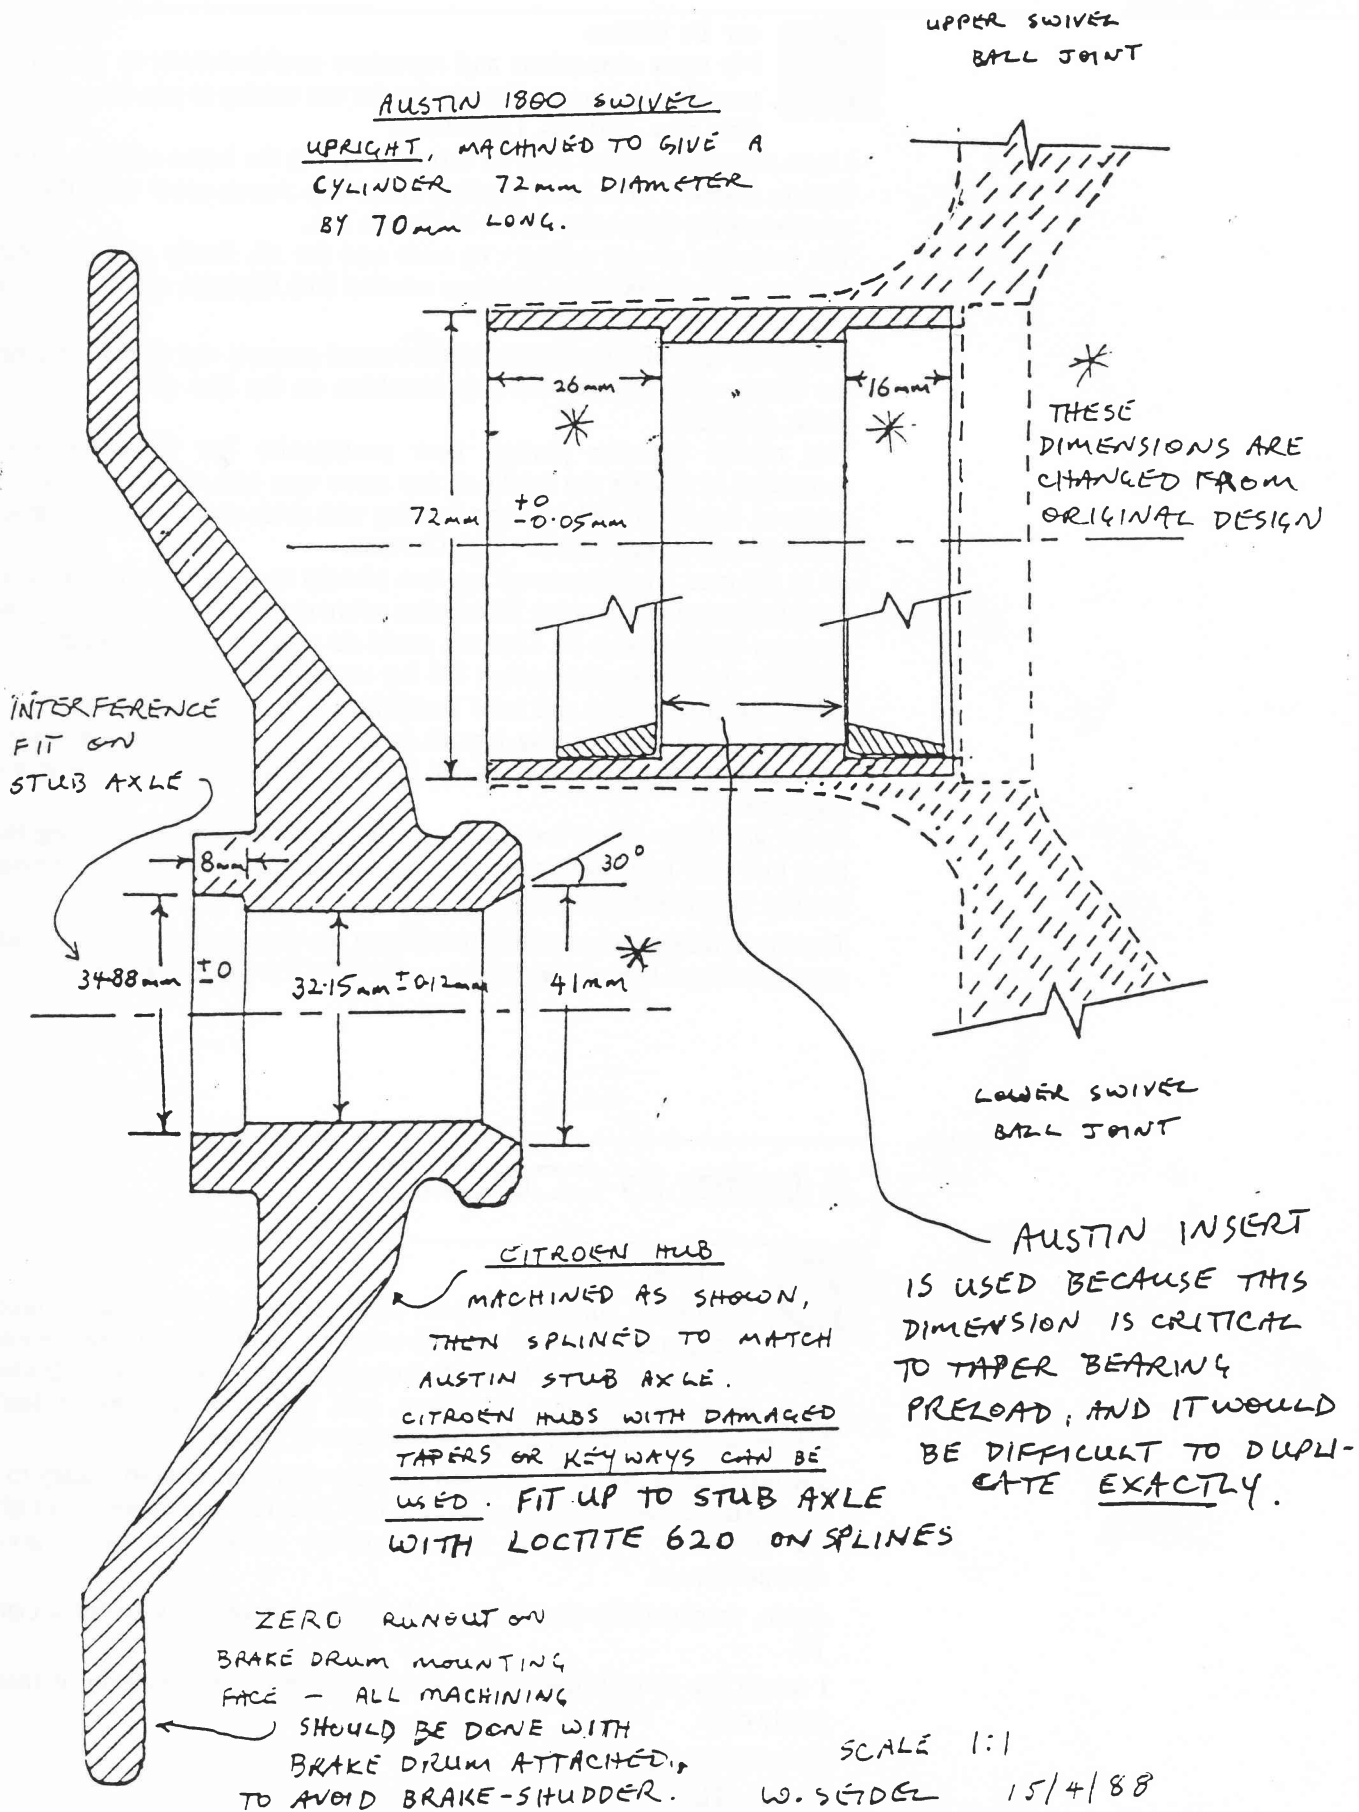 UPPER SWIVEL
BALL JOINT
AUSTIN 1800 SWIVEL
UPRIGHT, MACHINED TO GIVE A
CYLINDER 72mm DIAMETER
BY 70mm LONG.
26mm
16mm
THESE
DIMENSIONS ARE
CHANGED FROM
ORIGINAL DESIGN
72mm +0
-0.05mm
INTERFERENCE
FIT ON
STUB AXLE
8mm
30°
34.88mm ±0
32.15mm ±0.12mm
41mm
LOWER SWIVEL
BALL JOINT
AUSTIN INSERT
IS USED BECAUSE THIS
DIMENSION IS CRITICAL
TO TAPER BEARING
PRELOAD, AND IT WOULD
BE DIFFICULT TO DUPLI-
CATE EXACTLY.
CITROEN HUB
MACHINED AS SHOWN,
THEN SPLINED TO MATCH
AUSTIN STUB AXLE.
CITROEN HUBS WITH DAMAGED
TAPERS OR KEYWAYS CAN BE
USED. FIT UP TO STUB AXLE
WITH LOCTITE 620 ON SPLINES
ZERO RUNOUT ON
BRAKE DRUM MOUNTING
FACE - ALL MACHINING
SHOULD BE DONE WITH
BRAKE DRUM ATTACHED,
TO AVOID BRAKE-SHUDDER.
SCALE 1:1
W. SEIDEL 15/4/88